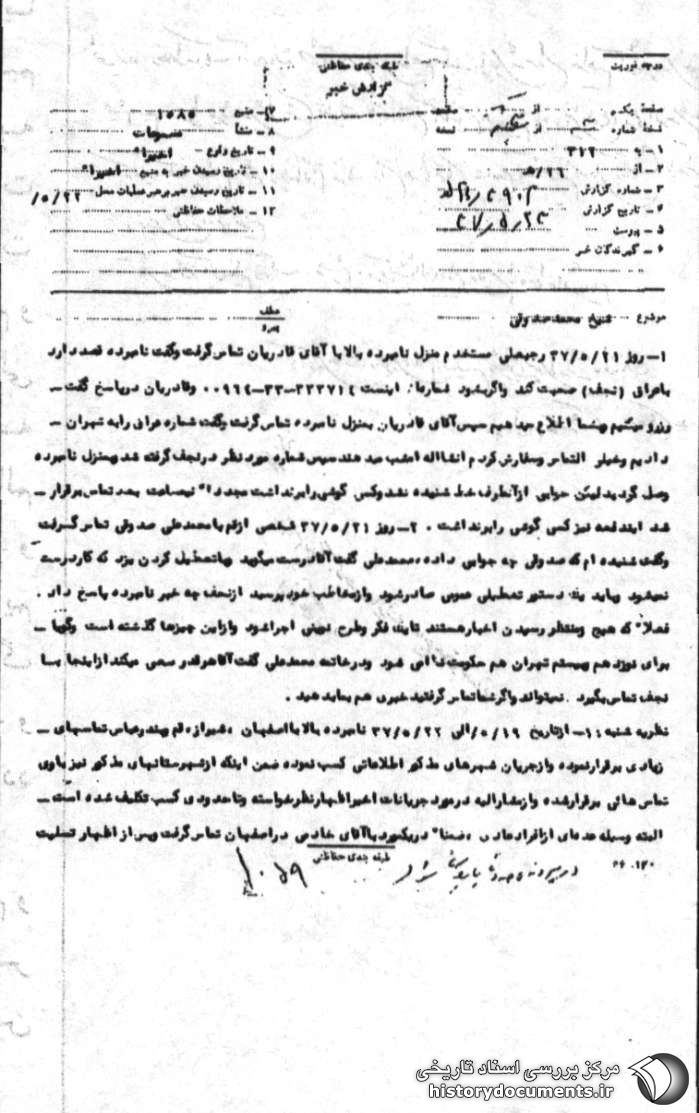 درجه فوریت
طبقه بندی حفاظتی
گزارش خبر
صفحه یک از صفحه
نسخه شماره از نسخه
۱ـ به ۳۱۲
۲ـ از ۲۶/ه
۳ـ شماره گزارش
۴ـ تاریخ گزارش ۳۷/۵/۲۳
۵ـ پیوست
۶ـ گیرندگان خبر
۷ـ منبع ۱۵۸۵
۸ـ منشأ مسموعات
۹ـ تاریخ وقوع اخیراً
۱۰ـ تاریخ رسیدن خبر به منبع اخیراً
۱۱ـ تاریخ رسیدن خبر برهبر عملیات محل ۵/۲۲/
۱۲ـ ملاحظات حفاظتی
موضوع شیخ محمد صدوقی
عطف
پیرو
۱ـ روز ۳۷/۵/۲۱ رجبعلی مستخدم منزل نامبرده بالا با آقای قادریان تماس گرفت وگفت نامبرده قصد دارد
باعراق (نجف) صحبت کند واگر بشود شماره ما، اینست ۳۳۳۷۱۴ـ۳۳ـ۰۰۹۶۴ وقادریان درپاسخ گفت ـ
رزرو میکنیم بشما اطلاع میدهیم سپس آقای قادریان بمنزل نامبرده تماس گرفت وگفت شماره عراق رابه تهران ـ
دادیم وخیلی التماس وسفارش کردم انشااله امشب میدهند سپس شماره مورد نظر درنجف گرفته شد وبمنزل نامبرده
وصل گردید لیکن جوابی ازآنطرف خط شنیده نشد وکس گوشی رابرنداشت مجدداً نیمساعت بعد تماس برقرار ـ
شد ایندفعه نیز کسی گوشی رابرنداشت . ۲ـ روز ۳۷/۵/۲۱ شخصی ازقم با محمدعلی صدوقی تماس گرفت
وگفت شنیده ام که صدوقی چه جوابی داده، محمدعلی گفت آقا درست میگوید باتعطیل کردن یزد که کار درست
نمیشود وباید یک دستور تعطیلی عمومی صادرشود وازمخاطب خود پرسید ازنجف چه خبر نامبرده پاسخ داد .
فعلاً که هیچ ومنتظر رسیدن اخبار هستند تایک فکر وطرح نوینی اجراشود وازاین چیزها گذشته است وگویا ـ
برای نوزدهم بیستم تهران هم حکومت نظامی شود ودرخاتمه محمدعلی گفت آقا هرقدر سعی میکند ازاینجا با
نجف تماس بگیرد . نمیتواند واگر شما تماس گرفتید خبری هم بما بدهید .
نظریه شنبه : ۱ـ ازتاریخ ۵/۱۹/ الی ۳۷/۵/۲۲ نامبرده بالا با اصفهان ، شیراز، قم بندرعباس تماسهای ـ
زیادی برقرار نموده وازجریان شهرهای مذکور اطلاعاتی کسب نموده ضمن اینکه ازشهرستانهای مذکور نیز باوی
تماس هائی برقرارشده وازمشارالیه درمورد جریانات اخیر اظهارنظر خواسته وتاحدودی کسب تکلیف شده است ـ
البته وسیله عده ای ازافراد عادی ، ضمناً دریکمورد با آقای خادمی دراصفهان تماس گرفت وپس از اظهار تسلیت
طبقه بندی حفاظتی
در پرونده شود
مرکز بررسی اسناد تاریخی
historydocuments.ir